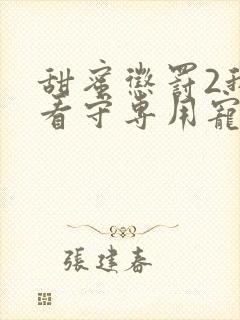 甜蜜懲罰2我
看守專用寵
張建春